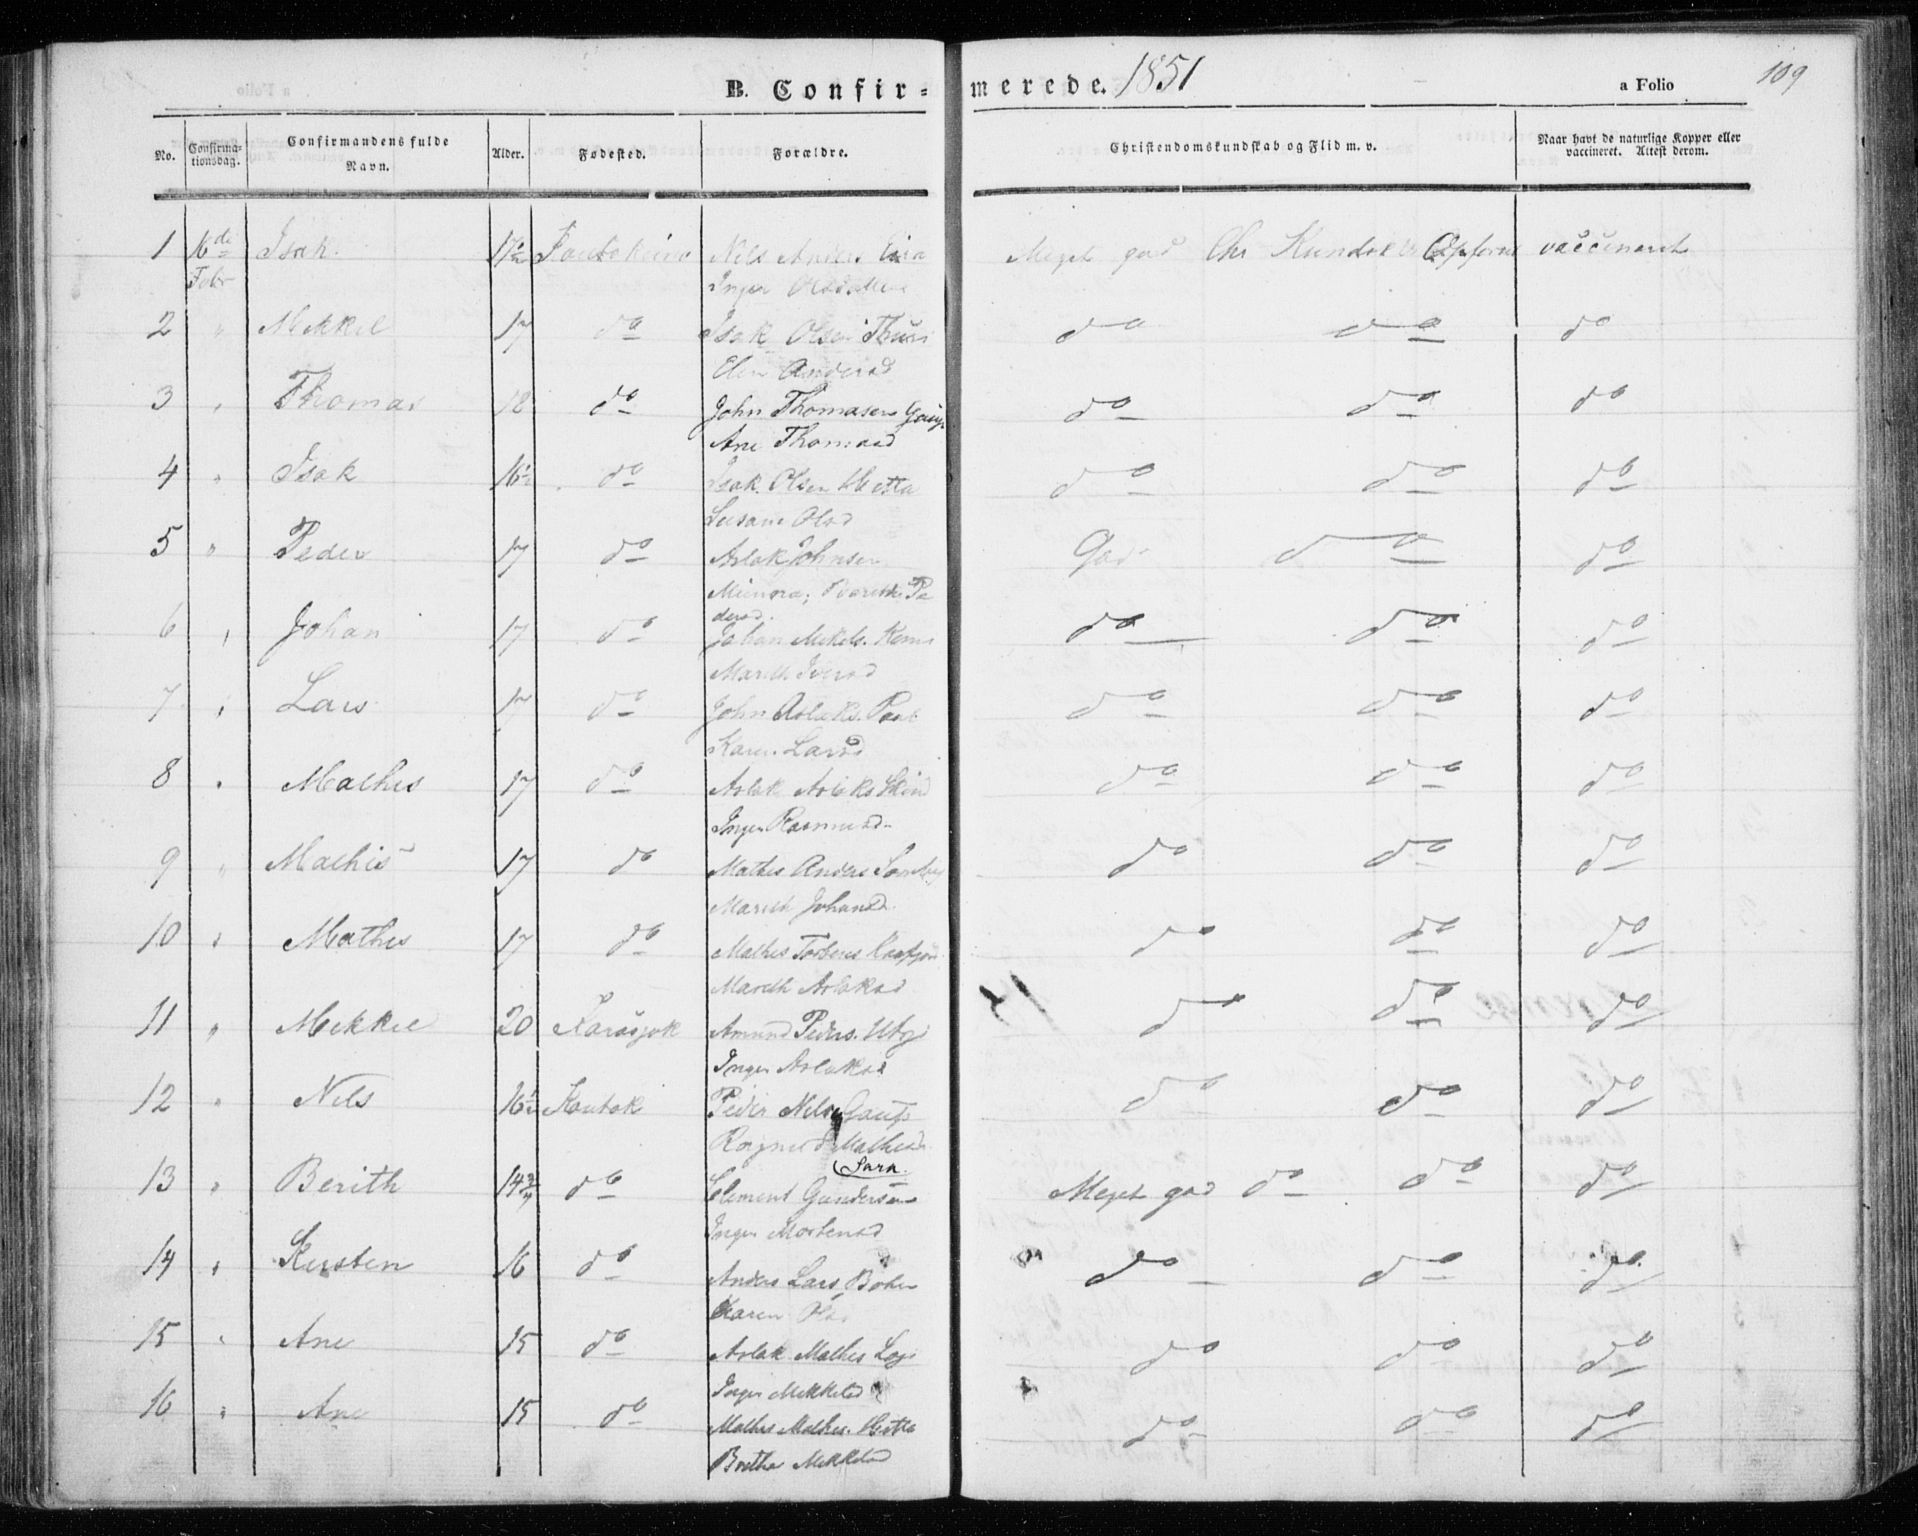 B. Confir-merede. 1851
a Folio 109
No. Confirmationsdag. Confirmandens fulde Navn. Alder. Fødested. Forældre. Christendomskundskab og Flid m. v. Naar havt de naturlige Kopper eller vaccineret. Attest derom.
1 16de Febr Isak 17½ Koutokeino Nils Anders Meget god Chr Kundsk Opførsel vaccineret
Inger Olsdatter
2 " Mekkel 17 do Isak Olsen Thuri do do do
Elen Andersd
3 " Thomas 18 do John Thomasen Gaup do do do
Ane Thomasd
4 " Isak 16½ do Isak Olsen Hetta do do do
Susane Olsd
5 " Peder 17 do Aslak Johnsen God do do
Berethe Pedersd.
6 " Johan 17 do Johan Mekels. do do do
Marith Iversd
7 " Lars 17 do John Aslaks. do do do
Karen Larsd
8 " Mathis 17 do Aslak Aslaks do do do
Inger Rasmusd.
9 " Mathis 17 do Mathis Anders Somby do do do
Marith Johansd.
10 " Mathis 17 do Mathis do do do
Marith Aslaksd
11 " Mekkel 20 Karasjok Amund Peders. Utsj do do do
Inger Aslaksd
12 " Nils 16½ Koutok Peder Nils Gaup do do do
Ragnild Mathisd
13 " Berith 14¾ do Clement Gundersen Sara. Meget god do do do
Inger Mortensd
14 " Kirsten 16 do Anders Lars do do do
Karen Olsd
15 " Ane 15 do Aslak Mathis do do do
Inger Mekkelsd
16 " Ane 15 do Mathis Mathis. Hetta do do do
Brethe Mekkelsd